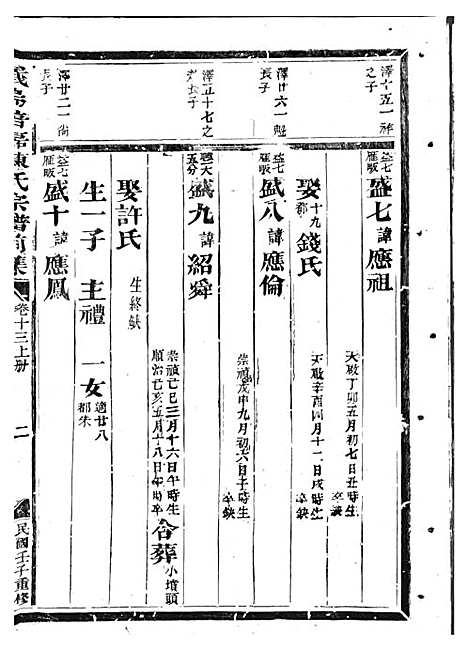 澤十五一祥
之子
益七
雁畈
盛七諱應祖
天啟丁卯五月初七日丑時生
卒缺
娶十九都錢氏
天啟辛酉四月十二日戌時生
卒缺
澤廿六一魁
長子
益七
雁畈
盛八諱應倫
崇禎戊申九月初六日子時生
卒缺
澤五十七之
長子
五分
盛九諱紹舜
崇禎己巳三月十六日午時生
順治己亥五月十八日午時卒
合葬小墳頭
娶許氏
生終缺
生一子 主禮 一女適廿八都朱
澤廿二一尚
長子
益七
雁畈
盛十諱應鳳
陳氏宗譜前集
卷十三上册
二
民國壬子重修